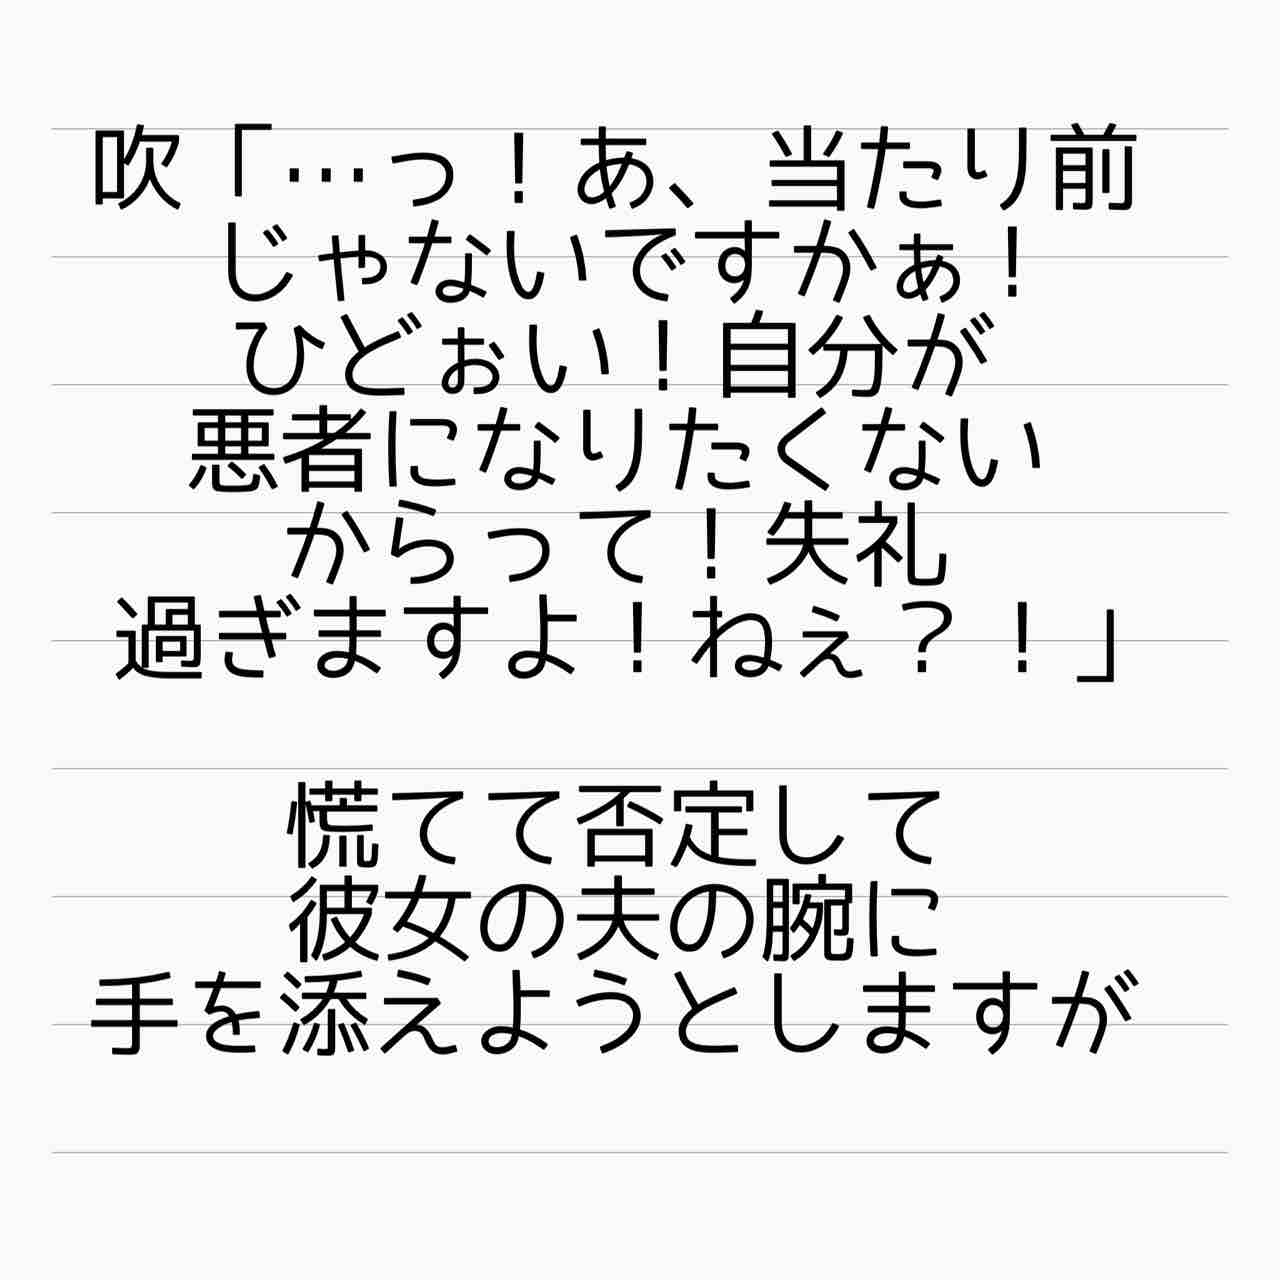 吹「…っ！あ、当たり前
じゃないですかぁ！
ひどぉい！自分が
悪者になりたくない
からって！失礼
過ぎますよ！ねぇ？！」
慌てて否定して
彼女の夫の腕に
手を添えようとしますが